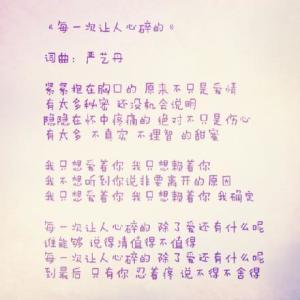 《每一次让人心碎的》
词曲：严艺丹
紧紧抱在胸口的 原来不只是爱情
有太多秘密 还没机会说明
隐隐在怀中疼痛的 绝对不只是伤心
有太多 不真实 不理智 的甜蜜
我只想爱着你 我只想抱着你
我不想听到你说非要离开的原因
我只想爱着你 我只想抱着你 我确定
每一次让人心碎的 除了爱还有什么呢
谁能够 说得清值得不值得
每一次让人心碎的 除了爱还有什么呢
到最后 只有你 忍着疼 说不得不舍得